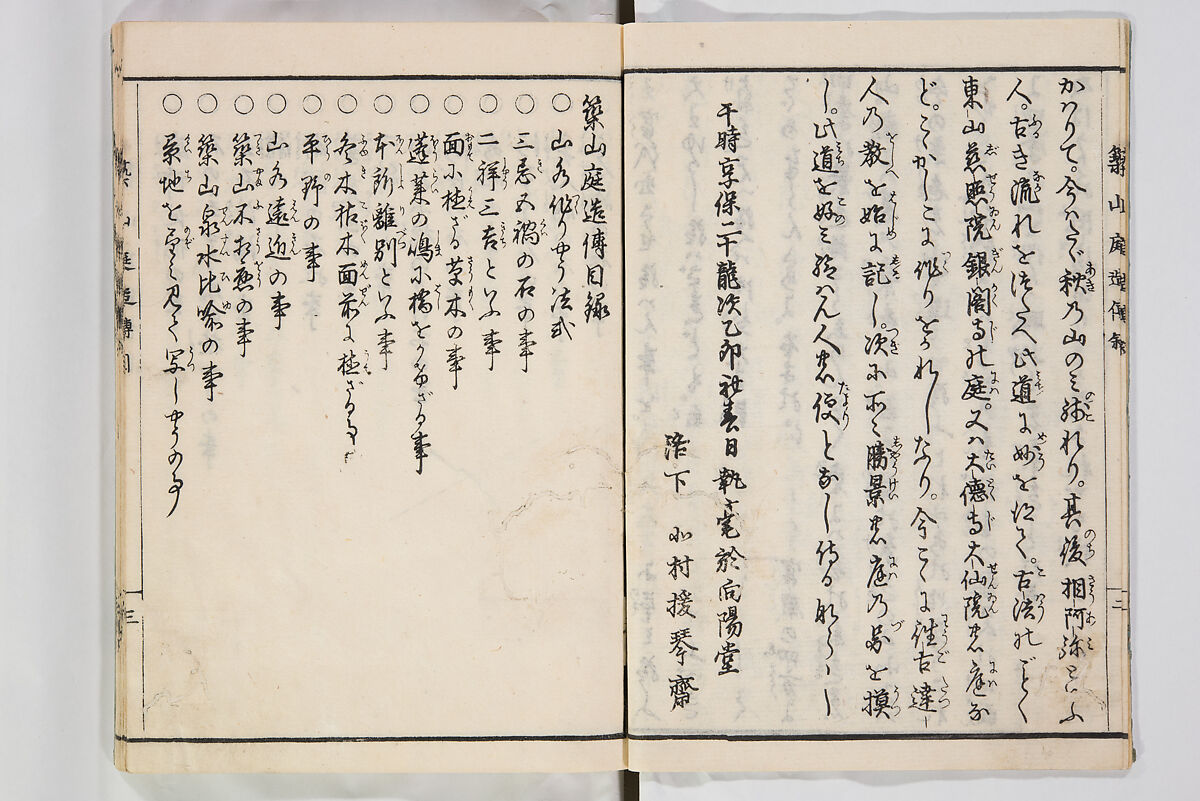 かはりて。今はたゞ秋の山のミ残れり。其後相阿弥といふ
人。古き流れをつたへ此道に妙を得て。古法のごとく
東山慈照院銀閣寺の庭。又ハ大徳寺大仙院の庭な
ど。こゝかしこに作りをかれしなり。今こゝに往古違し
人の教を始に記し。次に所々勝景の庭乃図を模
し。此道を好ミ給はん人の便となし侍るならし
于時享保二十龍次乙卯社春日執毫於向陽堂
洛下 北村援琴齋
築山庭造傳目録
○山水作りやう法式
○三忌五禍の石の事
○二祥三吉といふ事
○面に植ざる草木の事
○蓬莱の嶋に橋をかけざる事
○本所離別といふ事
○冬木枯木面前に植ざる事
○平野の事
○山水遠近の事
○築山不相應の事
○築山泉水比喩の事
○景地を望ミ見て写しやうの事
築山庭造傳叙
三
築山庭造傳目
三